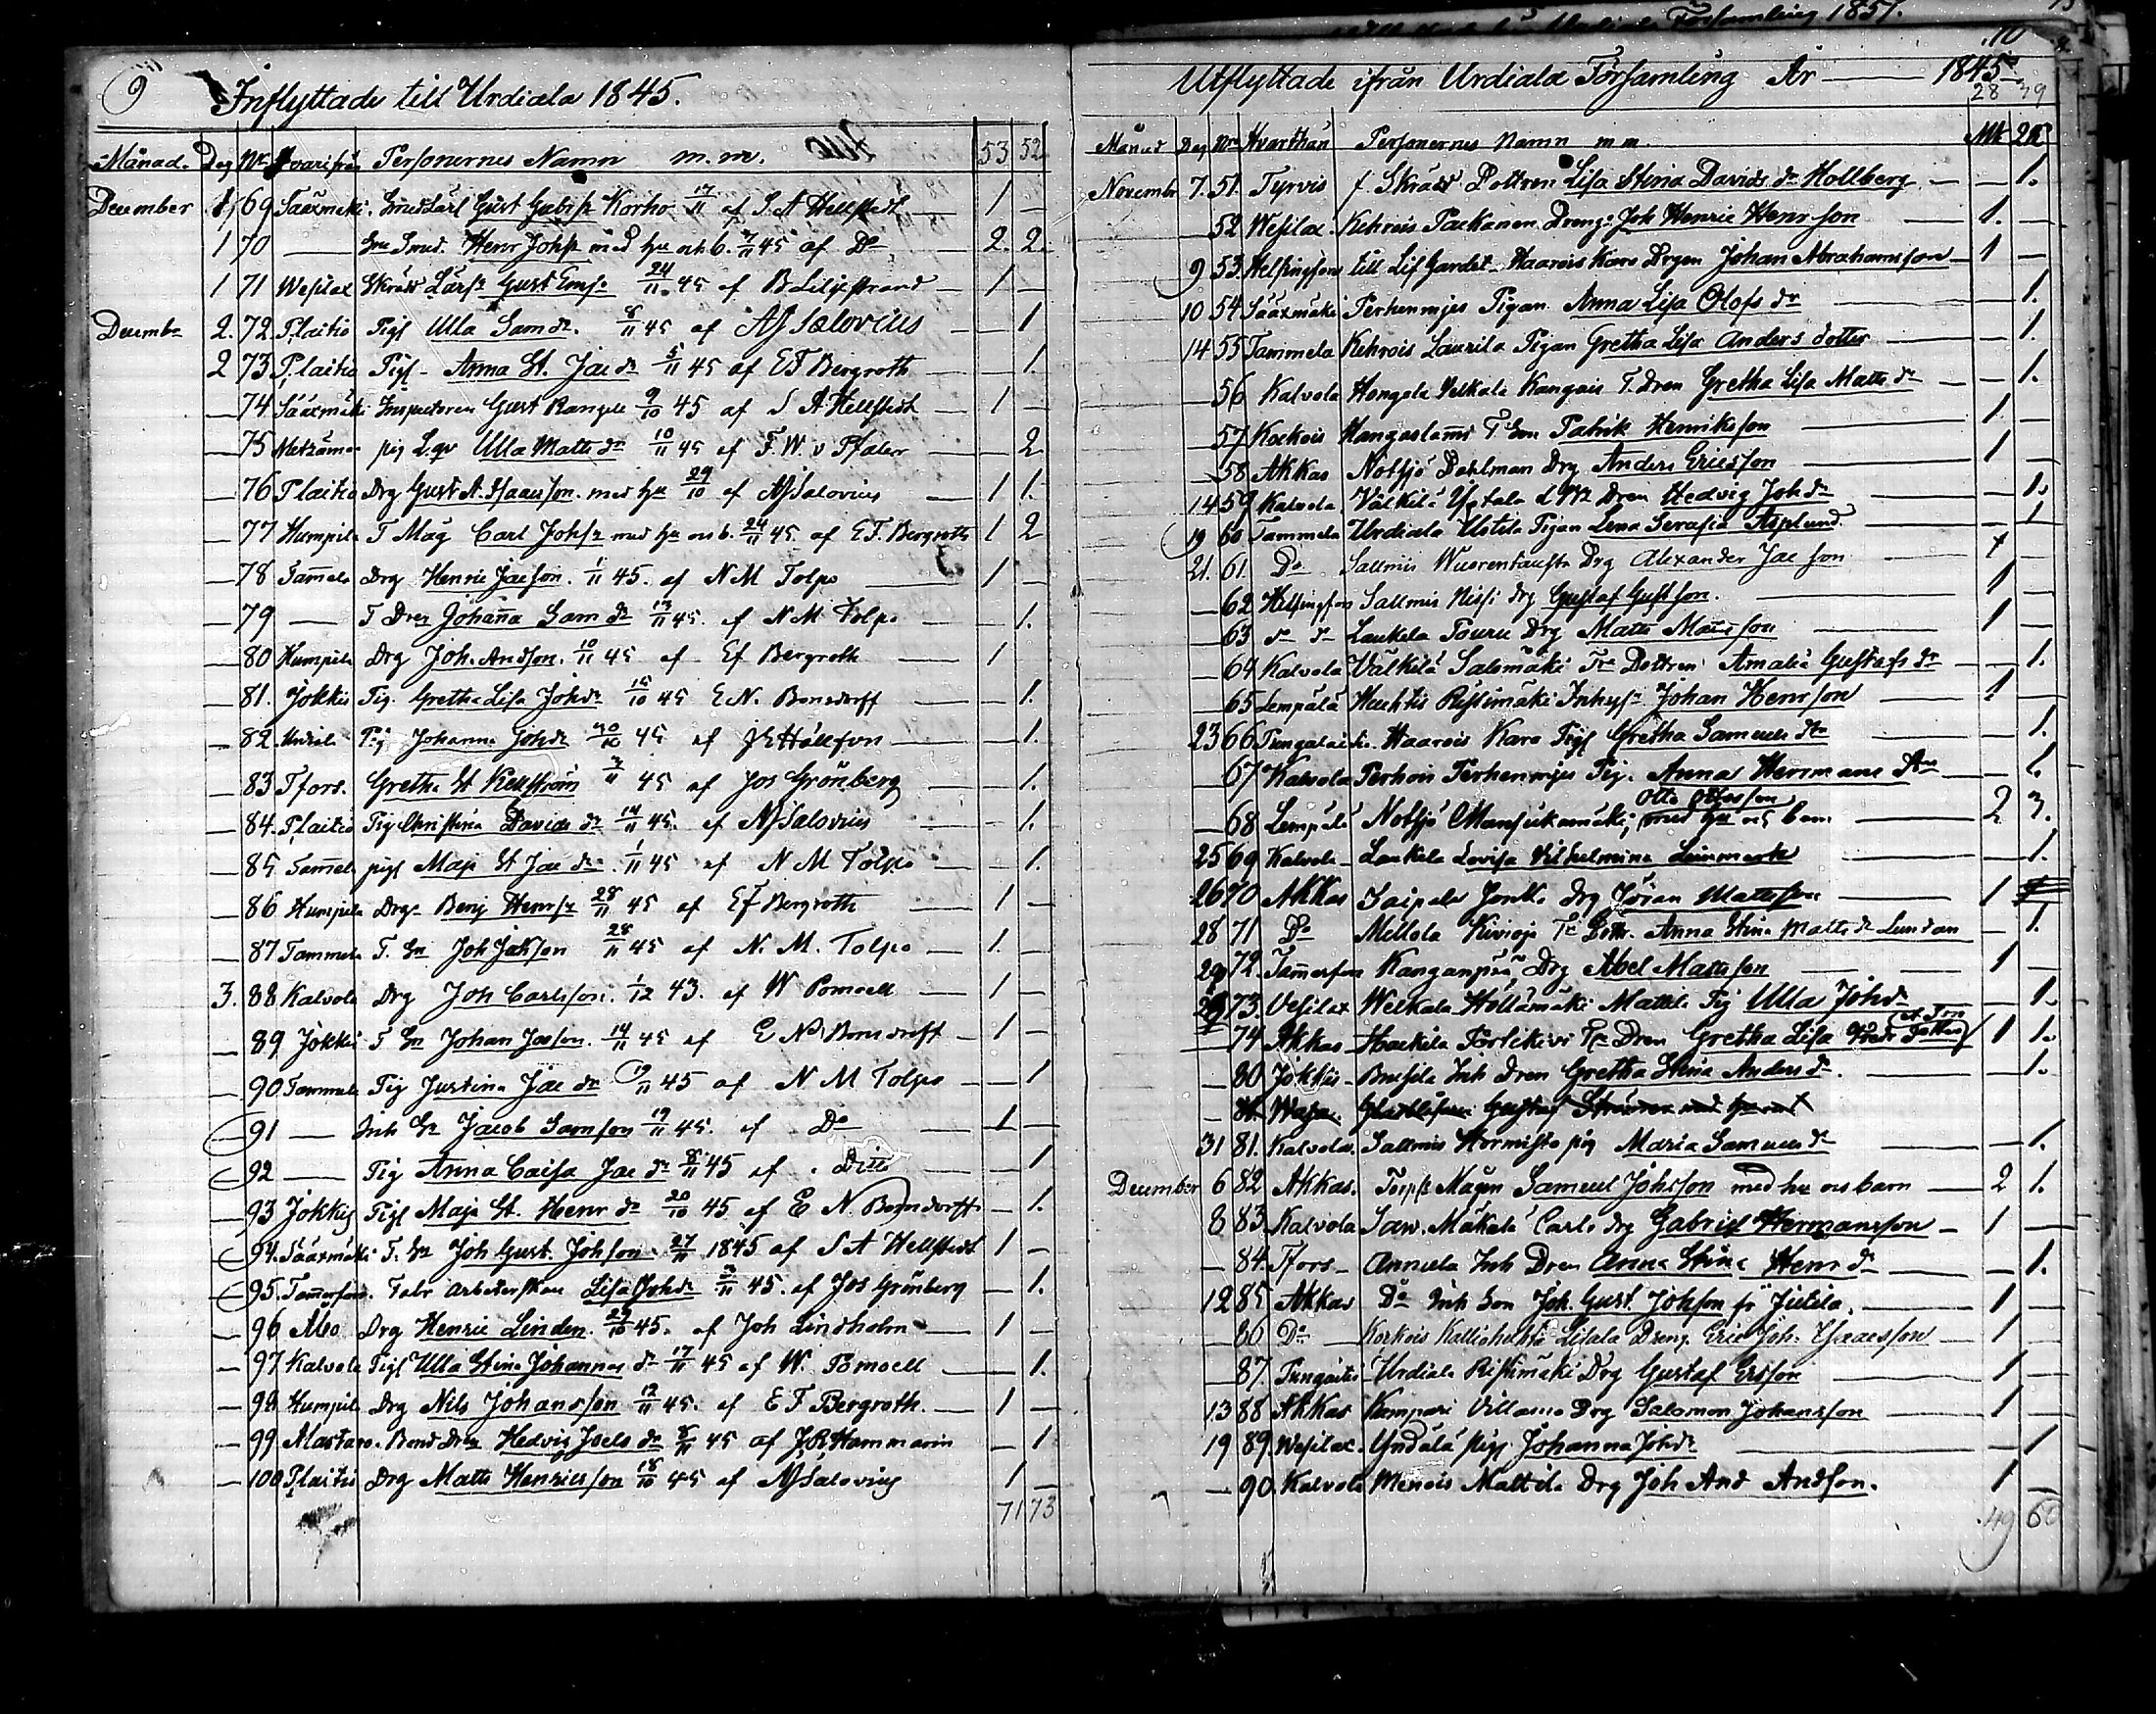 9
Inflyttade till Urdiala 1845.
Månad. Dag Nr Hvarifrån Personernes Namn m. m. 53 52
December 1 69 Sääxmäki. Smedlärl Gust Gabrsn Korho 17/11 af S. A Hellstedt 1 —
1 70 — Smed. Henr Johsn med hu och b. 45 af Do 2. 2.
1 71 Wesilax Skrädd Lärs. Gust Emf. 24/11 45 af B Liljestrand 1 —
Decembr 2. 72. P,laitio Pigl Ulla Sam dr. 8/11 45 af AJ Salovius — 1
2 73 P,laitio Pigl — Anna St. Jac dr 5/11 45 af E F Bergroth — 1.
— 74 Sääxmäki Inspectoren Gust Rangell 9/10 45 af S A Hellstedt 1 —
— 75 Metzämaa pig Ulla Matts dr 10/11 45 af F. W. v Pfaler — 2
— 76 P,laitio Drg Gust A. Isaacsson. med hu 29/10 af AJ Salovius 1 1.
— 77 Humpila T Måg Carl Johsn med hu och b. 24/11 45. af E F. Bergroth 1 2
— 78 Tamela Drg Henric Jacson. 1/11 45. af N M Tolpo 1 —
— 79 — T Dren Johanna Sam dr 13/11 45. af N M Tolpo — 1.
— 80 Humpila Drg Joh. Andson. 10/11 45 af Ef Bergroth 1
— 81. Jokkis Pig. Gretha Lisa Johdr 15/10 45 E N. Bonsdorff — 1.
— 82. Urdiala Pig Johanna Johdr 20/10 45 af — 1.
— 83 Tfors. Gretha St Kellström 45 af Jos Grönberg — 1.
— 84. P,laitio Pig Christina Davids dr 14/11 45. af AJ Salovius — 1.
— 85. Tamela pigl Maja St Jac dr. 1/11 45 af N M Tolpo — 1.
— 86 Humpila Drg Benj Henrsn 28/11 45 af Ef Bergroth 1 —
— 87 Tammela T. Sn Joh Jakson 28/11 45 af N. M. Tolpo 1. —
3. 88 Kalvola Drg Joh Carlsson. 1/12 43. af W Pomoell 1 —
— 89 Jokkis T Sn Johan Josson. 14/11 45 af E N Bonsdorff 1 —
— 90. Tammela Pig Justina Jac dr 19/11 45 af N M Tolpo — 1
— 91 — Inh Sn Jacob Samson 19/11 45. af Do 1 —
— 92 — Pig Anna Caisa Jac dr 8/11 45 af Ditto — 1
— 93 Jokkis Pigl Maja St. Henr dr 20/10 45 af E N. Bonsdorff — 1.
— 94. Sääxmäki T. Sn Joh Gust. Johson 27/11 1845 af S A Hellstedt 1 —
— 95. Tammerfors. Fabr arbeterskan Lisa Johdr 45. af Jos Grönberg — 1.
— 96 Åbo Drg Henric Linden. 29/10 45. af Joh Lindholm 1 —
— 97 Kalvola Pigl Ulla Stina Johannes dr 17/11 45 af W. Pomoell — 1.
— 98 Humpila Drg Nils Johansson 12/11 45. af E F Bergroth. 1 —
— 99 Mastaro. Bond Dren Hedvig Joels dr 8/11 45 af J R Hammarin — 1
— 100 P,laitio Drg Matts Henricsson 18/10 45 af AJ Salovius 1 —
71 73
Församling 1851.
10
Utflyttade ifrån Urdiala Församling År — 1845.
28 49
Månad Dag Nro Hvarthän Personernes Namn m m. Mk Qk
Novembr 7. 51. Tyrvis f. Skrädd Dottren Lisa Stina Davids dr Hollberg — 1.
— 52 Wesilax. Kehrois Paekanen Dreng. Joh Henric Henrson 1. —
9 53. Helsingfors till Lif Gardet Haarois Karo Drgen Johan Abrahamsson 1 —
10 54 Sääxmäki Perhenmies Pigan Anna Lisa Olofs dr — 1.
14 55 Tammela Kehrois Laurila Pigan Gretha Lisa Anders dotter — 1.
— 56 Kalvola Hongola Velkala Kangais T. Dren Gretha Lisa Matts. dr — 1.
— 57 Kockois Kangaslami T Son Patrik Henriksson 1 —
— 58 Akkas Notsjö Dahlman Drg Anders Ericsson 1 —
14 59 Kalvola Välkilä Dren Hedvig Joh dr — 1.
19 60 Tammela Urdiala Uotila Pigan Lena Serafia Asplund — 1
21. 61. Do Salmis Wuorentausta Drg Alexander Jac son 1 —
— 62 Helsingfors Salmis Nissi drg Gustaf Gustson. 1 —
— 63 do do Laukela Touru Drg Matts Mattsson 1 —
— 64 Kalvola Välkilä Salomäki Trp Dottren Amalia Gustafs dr — 1.
— 65 Lempälä Huhtis Ristimäki Inhys. Johan Henrson 1 —
23 66 Pungalaitio. Haarois Karo Pigl Gretha Samuels dtr — 1.
— 67 Kalvola Perhois Perhenmies Pig. Anna Hermans dtr — 1.
Otto Ottosson
— 68 Lempälä Notsjö Mansikamäki, med hu och barn 2 3.
25 69 Kalvola Laukela Lovisa Vilhelmina Leinmark — 1.
26 70 Akkas Saipala Jontti drg Jöran Mattsson 1
28 71 Do Mellola Kivioja Tr Dottr. Anna Stina Matts dr Lundan — 1.
29 72. Tamerfors Kanganpää Drg Abel Mattsson 1 —
29 73. Vesilax Welkala Hollämäki Mattila Pig Ulla Johdr — 1.
et Son
— 74 Akkas Hackila Torlckivi Tr Dren Gretha Lisa 1 1.
— 80 Jokkis Inh Dren Gretha Stina Anders dr. — 1.
31 81. Kalvola. Salmis Hormisto pig Maria Samuels dr — 1.
December 6 82 Akkas. Torps Mågen Samuel Johsson med hu och barn 2 1.
8 83. Kalvola Saw. Mäkelä Carls drg Gabriel Hermansson 1 —
— 84. Tfors Annula Inh Dren Anna Stina Henr dr — 1.
12 85 Akkas Do Inh Son Joh. Gust. Johson fr Jutila. 1 —
— 86 Do Korkois Kalliohuhta Lisala Dreng. Eric Joh. Isaacsson 1 —
— 87. Pungaitio Urdiala Ristimäki Drg Gustaf Ersson 1 —
13 88 Akkas Kampari Villamo Drg Salomon Johansson 1 —
19 89. Wesilax. Yndälä pigl Johanna Johdr — 1
— 90. Kalvola Menois Mattila Drg Joh And Andson. 1 —
49 60